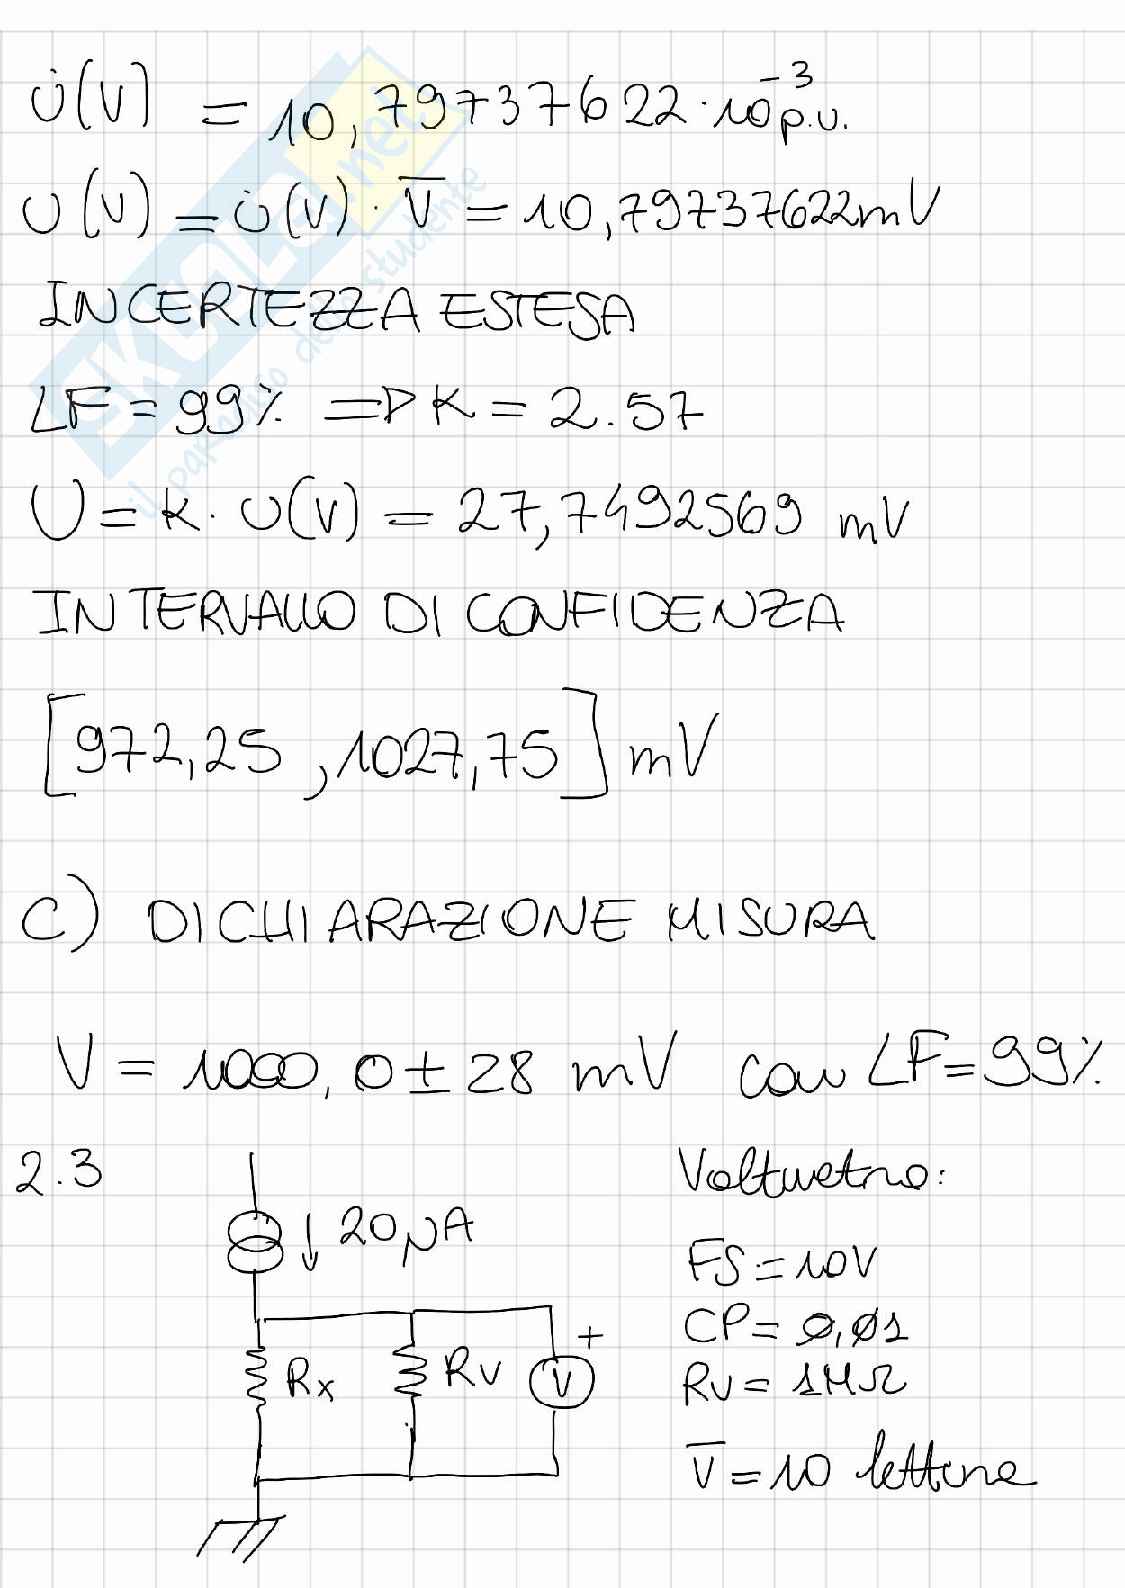 u̇(V) = 10,79737622·10⁻³ p.u.
u(V) = u̇(V)·V̅ = 10,79737622mV
INCERTEZZA ESTESA
LF = 99% => K = 2.57
U = K·u(V) = 27,7492569 mV
INTERVALLO DI CONFIDENZA
[972,25 , 1027,75] mV
C) DICHIARAZIONE MISURA
V = 1000,0 ± 28 mV con LF=99%
2.3
↓ 20μA
Rx
Rv
V
+
Voltmetro:
FS = 10V
CP = 0,01
Rv = 1MΩ
V̅ = 10 letture
SKUOLA.net
il paradiso dello studente